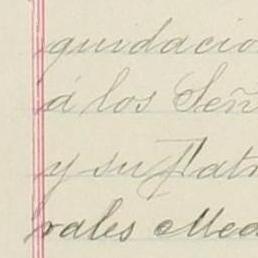 quidacio
á los Señ
y su Patr
rales Med